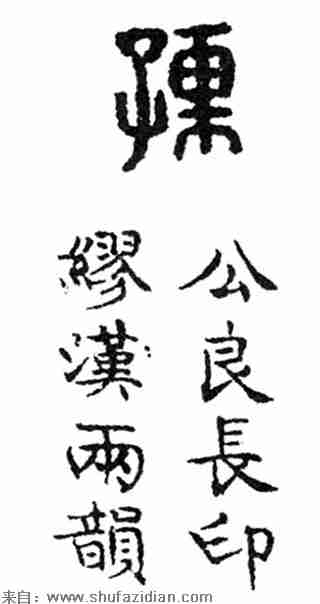 公良長印
繆漢兩韻
来自：www.shufazidian.com